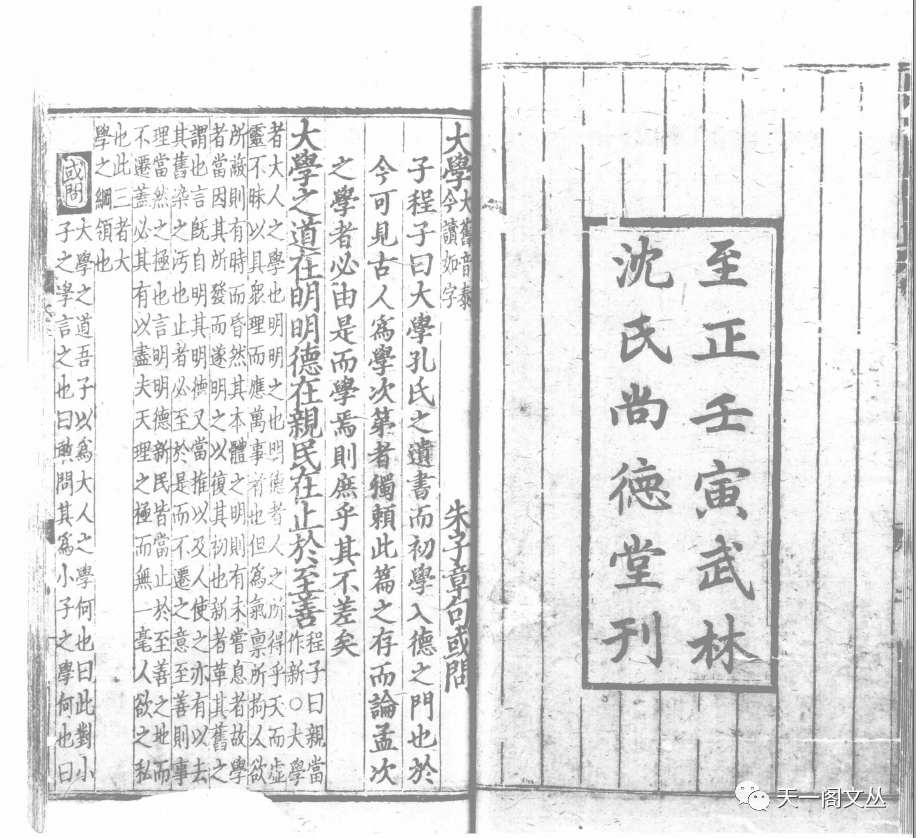 至正壬寅武林
沈氏尚德堂刊
大學 大舊音泰 今讀如字 朱子章句或問
子程子曰大學孔氏之遺書而初學入德之門也於
今可見古人爲學次第者獨賴此篇之存而論孟次
之學者必由是而學焉則庶乎其不差矣
大學之道在明明德在親民在止於至善 程子曰親當
作新○大學
者大人之學也明明之也明德者人之所得乎天而虛
靈不昧以具衆理而應萬事者也但爲氣稟所拘人欲
所蔽則有時而昏然其本體之明則有未嘗息者故學
者當因其所發而遂明之以復其初也新者革其舊之
謂也言既自明其明德又當推以及人使之亦有以去
其舊染之汚也止者必至於是而不遷之意至善則事
理當然之極也言明明德新民皆當止於至善之地而
不遷蓋必其有以盡夫天理之極而無一毫人欲之私
也此三者大
學之綱領也
或問 大學之道吾子以爲大人之學何也曰此對小
子之學言之也曰敢問其爲小子之學何也曰
天一阁文丛